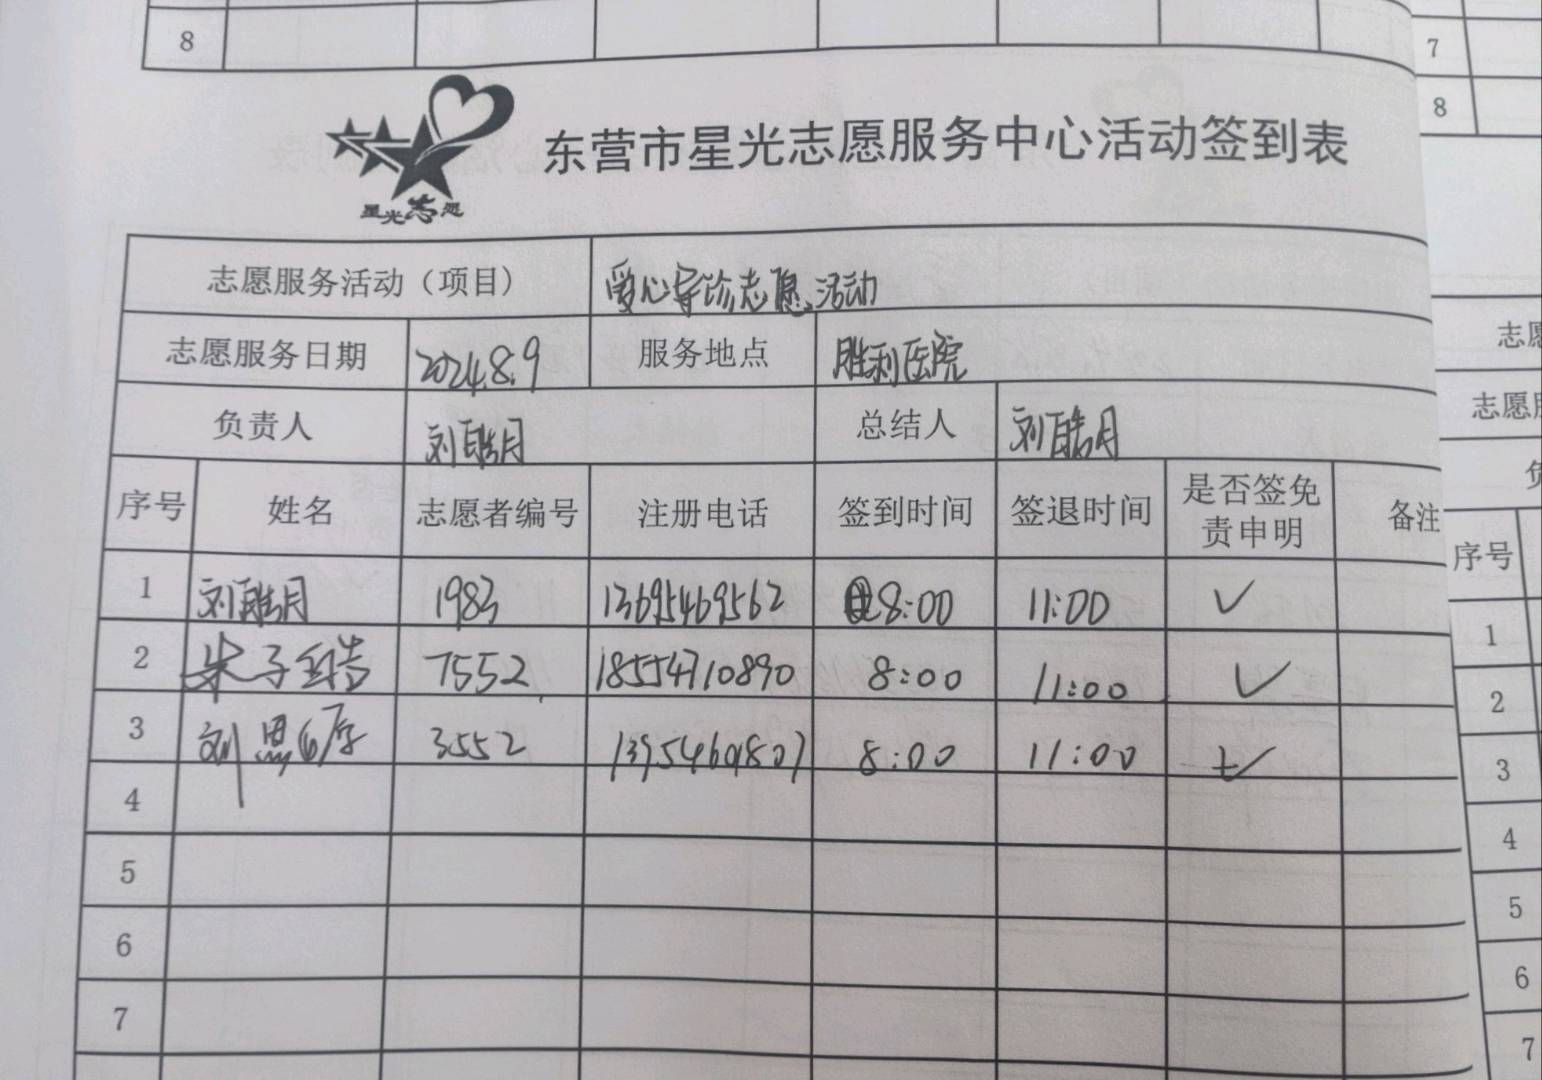 8
7
8
星光志愿
东营市星光志愿服务中心活动签到表
志愿服务活动（项目） 爱心导诊志愿活动
志愿服务日期 2024.8.9 服务地点 胜利医院
负责人 刘皓月 总结人 刘皓月
序号 姓名 志愿者编号 注册电话 签到时间 签退时间 是否签免责申明 备注
1 刘皓月 1983 13695469562 8:00 11:00 ✓
2 朱子 7552 18554710890 8:00 11:00 ✓
3 刘恩 3552 13954601807 8:00 11:00 ✓
4
5
6
7
志愿
志愿服
负
序号
1
2
3
4
5
6
7